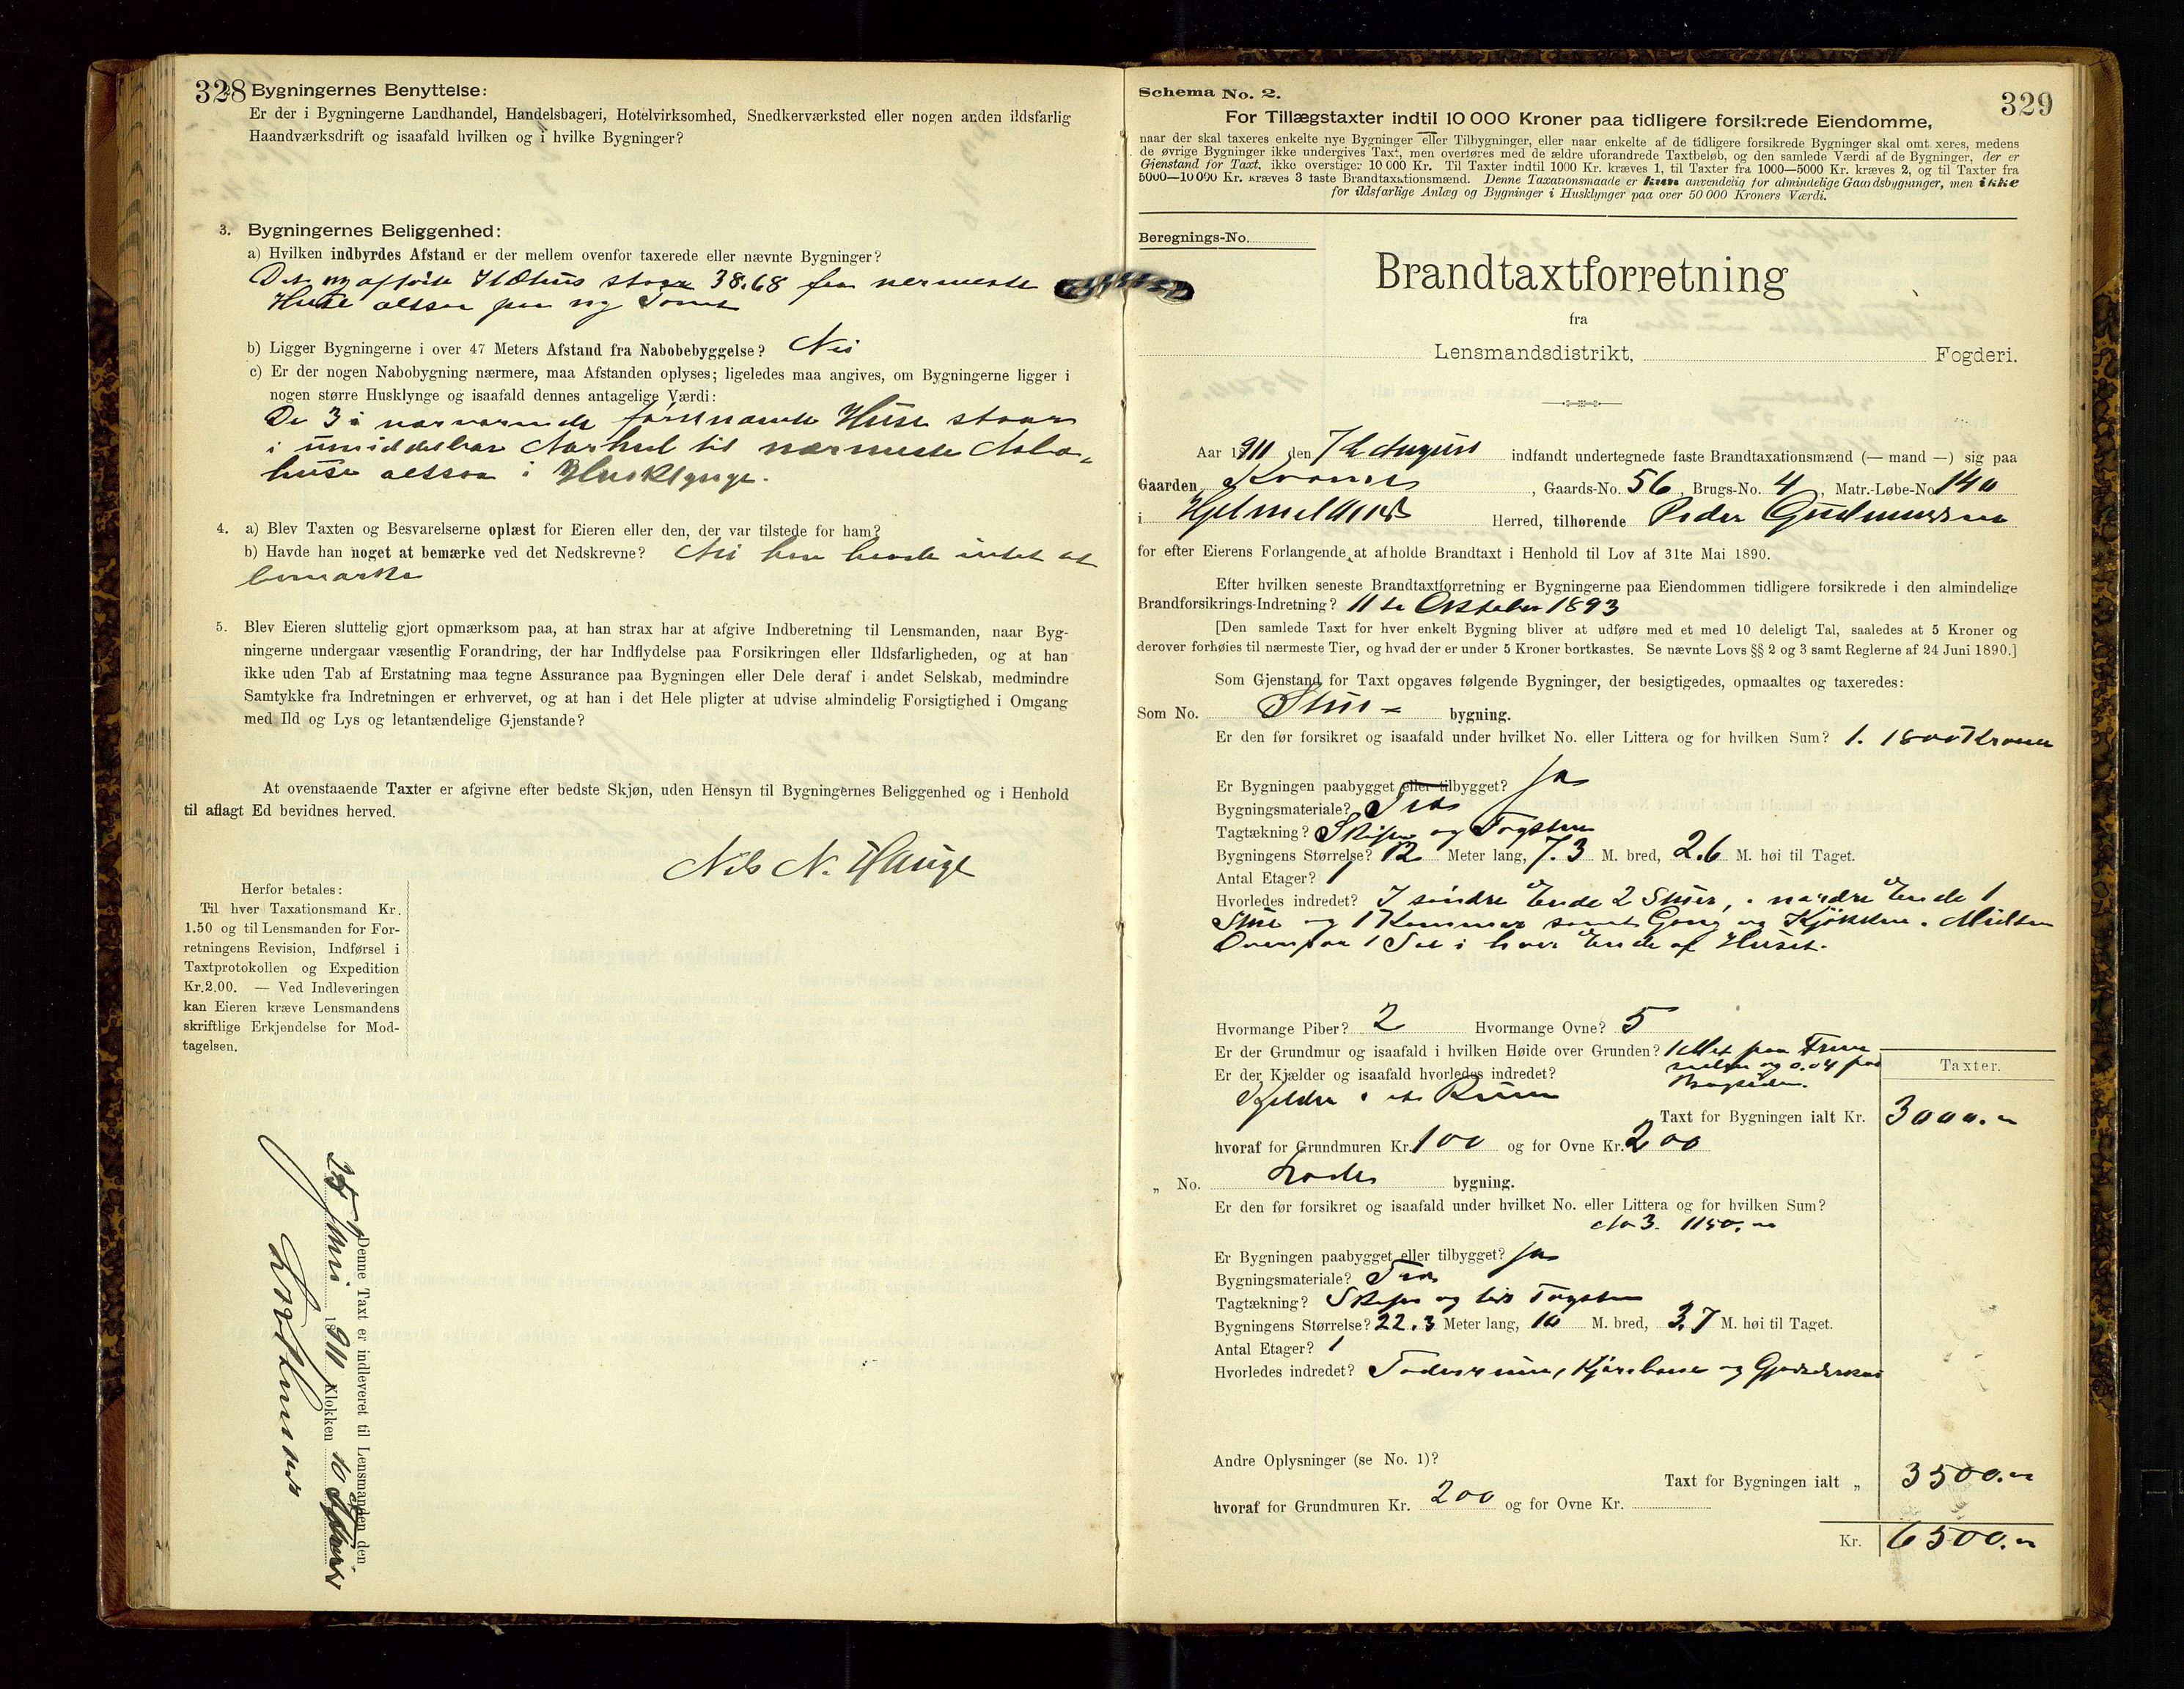 328
Bygningernes Benyttelse:
Er der i Bygningerne Landhandel, Handelsbageri, Hotelvirksomhed, Snedkerværksted eller nogen anden ildsfarlig
Haandværksdrift og isaafald hvilken og i hvilke Bygninger?
3. Bygningernes Beliggenhed:
a) Hvilken indbyrdes Afstand er der mellem ovenfor taxerede eller nævnte Bygninger?
Det ny opførte Ildhus staar 38.68 fra nermeste
Huse altsaa paa ny Tomt
b) Ligger Bygningerne i over 47 Meters Afstand fra Nabobebyggelse? Nei
c) Er der nogen Nabobygning nærmere, maa Afstanden oplyses; ligeledes maa angives, om Bygningerne ligger i
nogen større Husklynge og isaafald dennes antagelige Værdi:
De 3 i nærværende Huse staar
i umiddelbar Nærhed til nærmeste Nabo-
huse altsaa i Husklynge.
4. a) Blev Taxten og Besvarelserne oplæst for Eieren eller den, der var tilstede for ham?
b) Havde han noget at bemærke ved det Nedskrevne? Nei han havde intet at
bemærke
5. Blev Eieren sluttelig gjort opmærksom paa, at han strax har at afgive Indberetning til Lensmanden, naar Byg-
ningerne undergaar væsentlig Forandring, der har Indflydelse paa Forsikringen eller Ildsfarligheden, og at han
ikke uden Tab af Erstatning maa tegne Assurance paa Bygningen eller Dele deraf i andet Selskab, medmindre
Samtykke fra Indretningen er erhvervet, og at han i det Hele pligter at udvise almindelig Forsigtighed i Omgang
med Ild og Lys og letantændelige Gjenstande?
At ovenstaaende Taxter er afgivne efter bedste Skjøn, uden Hensyn til Bygningernes Beliggenhed og i Henhold
til aflagt Ed bevidnes herved.
Nils N. Hauge
Herfor betales:
Til hver Taxationsmand Kr.
1.50 og til Lensmanden for For-
retningens Revision, Indførsel i
Taxtprotokollen og Expedition
Kr.2.00. — Ved Indleveringen
kan Eieren kræve Lensmandens
skriftlige Erkjendelse for Mod-
tagelsen.
Denne Taxt er indleveret til Lensmanden den
25 1911 Klokken 10
329
Schema No. 2.
For Tillægstaxter indtil 10 000 Kroner paa tidligere forsikrede Eiendomme,
naar der skal taxeres enkelte nye Bygninger eller Tilbygninger, eller naar enkelte af de tidligere forsikrede Bygninger skal omt xeres, medens
de øvrige Bygninger ikke undergives Taxt, men overføres med de ældre uforandrede Taxtbeløb, og den samlede Værdi af de Bygninger, der er
Gjenstand for Taxt, ikke overstiger 10 000 Kr. Til Taxter indtil 1000 Kr. kræves 1, til Taxter fra 1000—5000 Kr. kræves 2, og til Taxter fra
5000—10 000 Kr. kræves 3 faste Brandtaxationsmænd. Denne Taxationsmaade er kun anvendelig for almindelige Gaardsbygninger, men ikke
for ildsfarlige Anlæg og Bygninger i Husklynger paa over 50 000 Kroners Værdi.
Beregnings-No.
Brandtaxtforretning
fra
Lensmandsdistrikt, Fogderi.
Aar 1911 den 7de August indfandt undertegnede faste Brandtaxationsmænd (— mand —) sig paa
Gaarden , Gaards-No. 56, Brugs-No. 4, Matr.-Løbe-No 140
i Hjelmeland Herred, tilhørende Peder Gudmundsen
for efter Eierens Forlangende at afholde Brandtaxt i Henhold til Lov af 31te Mai 1890.
Efter hvilken seneste Brandtaxtforretning er Bygningerne paa Eiendommen tidligere forsikrede i den almindelige
Brandforsikrings-Indretning? 11te Oktober 1893
[Den samlede Taxt for hver enkelt Bygning bliver at udføre med et med 10 deleligt Tal, saaledes at 5 Kroner og
derover forhøies til nærmeste Tier, og hvad der er under 5 Kroner bortkastes. Se nævnte Lovs §§ 2 og 3 samt Reglerne af 24 Juni 1890.]
Som Gjenstand for Taxt opgaves følgende Bygninger, der besigtigedes, opmaaltes og taxeredes:
Som No. Stue- bygning.
Er den før forsikret og isaafald under hvilket No. eller Littera og for hvilken Sum? 1. 1800 Kroner
Er Bygningen paabygget eller tilbygget? Ja
Bygningsmateriale? Træ
Tagtækning? Skifer og Tagsten
Bygningens Størrelse? 12 Meter lang, 7.3 M. bred, 2.6 M. høi til Taget.
Antal Etager? 1
Hvorledes indredet? I søndre Ende 2 Stuer, i nordre Ende 1
Stue og 1 Kammer samt Gang og Kjøkken i Midten
Ovenpaa 1 Sal i hver Ende af Huset.
Hvormange Piber? 2 Hvormange Ovne? 5
Er der Grundmur og isaafald i hvilken Høide over Grunden? 1 Met paa
og 0.04 paa
Bagsiden.
Er der Kjælder og isaafald hvorledes indredet?
Kjelder i et Rum
Taxter.
Taxt for Bygningen ialt Kr. 3000.-
hvoraf for Grundmuren Kr. 100 og for Ovne Kr. 200
„ No. Lade bygning.
Er den før forsikret og isaafald under hvilket No. eller Littera og for hvilken Sum?
No 3. 1150.-
Er Bygningen paabygget eller tilbygget? Ja
Bygningsmateriale? Træ
Tagtækning? Skifer og Tagsten
Bygningens Størrelse? 22.3 Meter lang, 10 M. bred, 3.7 M. høi til Taget.
Antal Etager? 1
Hvorledes indredet? Foderrum, og
Andre Oplysninger (se No. 1)?
Taxt for Bygningen ialt „ 3500.-
hvoraf for Grundmuren Kr. 200 og for Ovne Kr.
Kr. 6500.-